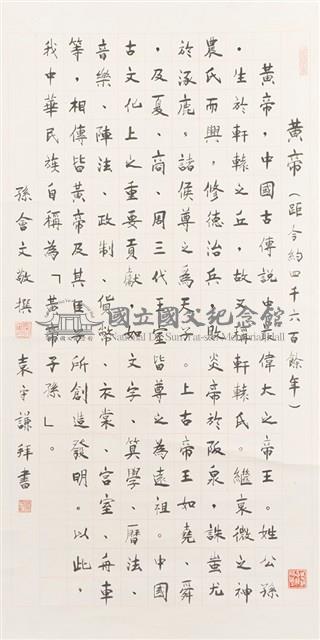 黃帝（距今約四千六百餘年）
黃帝，中國古傳說中最偉大之帝王。姓公孫
，生於軒轅之丘，故又稱軒轅氏。繼衰微之神
農氏而興，修德治兵，敗炎帝於阪泉，誅蚩尤
於涿鹿。諸侯尊之為天子。上古帝王如堯、舜
，及夏、商、周三代王室皆尊之為遠祖。中國
古文化上之重要貢獻，如文字、算學、曆法、
音樂、陣法、政制、貨幣、衣裳、宮室、舟車
等，相傳皆黃帝及其臣子所創造發明。以此，
我中華民族自稱為「黃帝子孫」。
孫會文敬撰
袁守謙拜書
國立國父紀念館
National Dr. Sun Yat-sen Memorial Hall